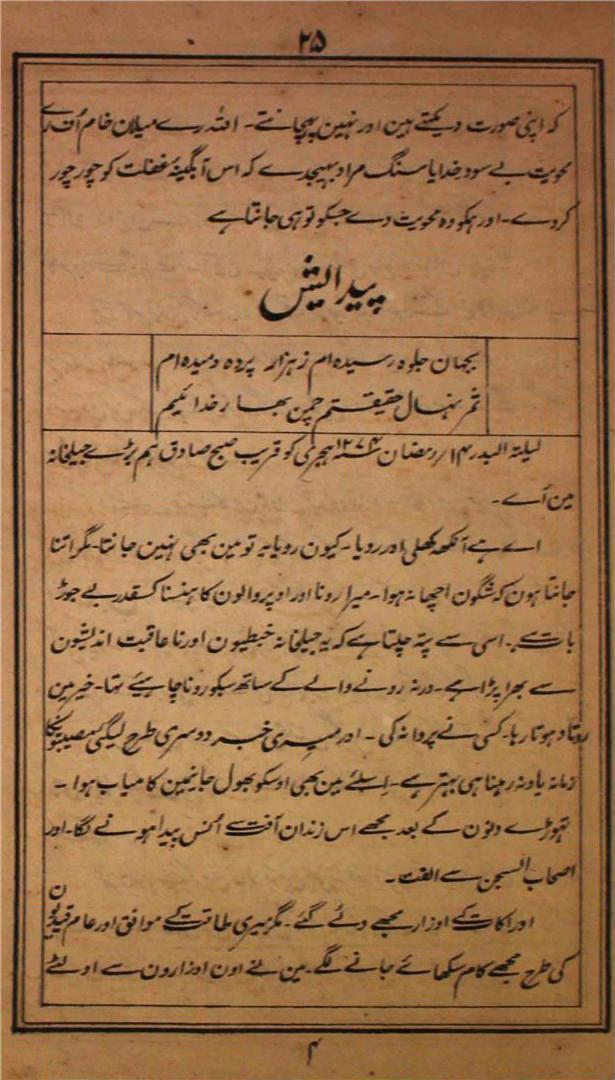 ۲۵
کہ اپنی صورت دیکھتے ہین اور نہین پہچانتے۔ اللہ رے میلان خام اُف رے
محویت بے سود خدایا سنگ مراد بہیجدے کہ اس آبگینۂ غفلت کو چور چور
کردے۔ اور ہمکو وہ محویت دے جسکو تو ہی جانتا ہے
پیدایش
بجہان جلوہ رسیدہ ام ز ہزار پردہ دمیدہ ام
ثمر نہال حقیقتم چمن بہار خدائیم
لیلتہ البدر ۱۴؍ رمضان ۱۲۷۴ ہجری کو قریب صبح صادق ہم بڑے جیلخانہ
مین آے۔
اے ہے آنکھ کھلی اور رویا۔ کیون رویا یہ تو مین بھی نہین جانتا۔ مگر اتنا
جانتا ہون کہ شگون اچھا نہ ہوا۔ میرا رونا اور اوپر والون کا ہنسنا کسقدر بے جوڑ
بات ہے۔ اسی سے پتہ چلتا ہے کہ یہ جیلخانہ خبطیون اور نا عاقبت اندیشون
سے بھرا پڑا ہے۔ ورنہ رونے والے کے ساتھ سبکو رونا چاہیئے تہا۔ خیر مین
روتا دہوتا رہا۔ کسی نے پروا نہ کی۔ اور میری خبر دوسری طرح لیگئی مصیبتونکا
زمانہ یاد نہ رہنا ہی بہتر ہے۔ اسلئے مین بھی اوسکو بھول جانیمین کامیاب ہوا۔
تہوڑے دنون کے بعد مجھے اس زندان آفت سے اُنس پیدا ہونے لگا۔ اور
اصحاب السجن سے الفت۔
ادراکات کے اوزار مجھے دئے گئے۔ مگر میری طاقت کے موافق اور عام قیدیون
کی طرح مجھے کام سکھائے جانے لگے۔ مین نے اون اوزارون سے اولٹے
۴